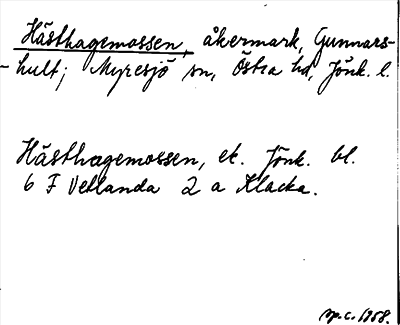 Hästhagemossen, åkermark, Gunnars-
-hult; Myresjö sn, Östra hd, Jönk. l.
Hästhagemossen, ek. Jönk. bl.
6 F Vetlanda 2 a Klacka.
sp.c. 1958.